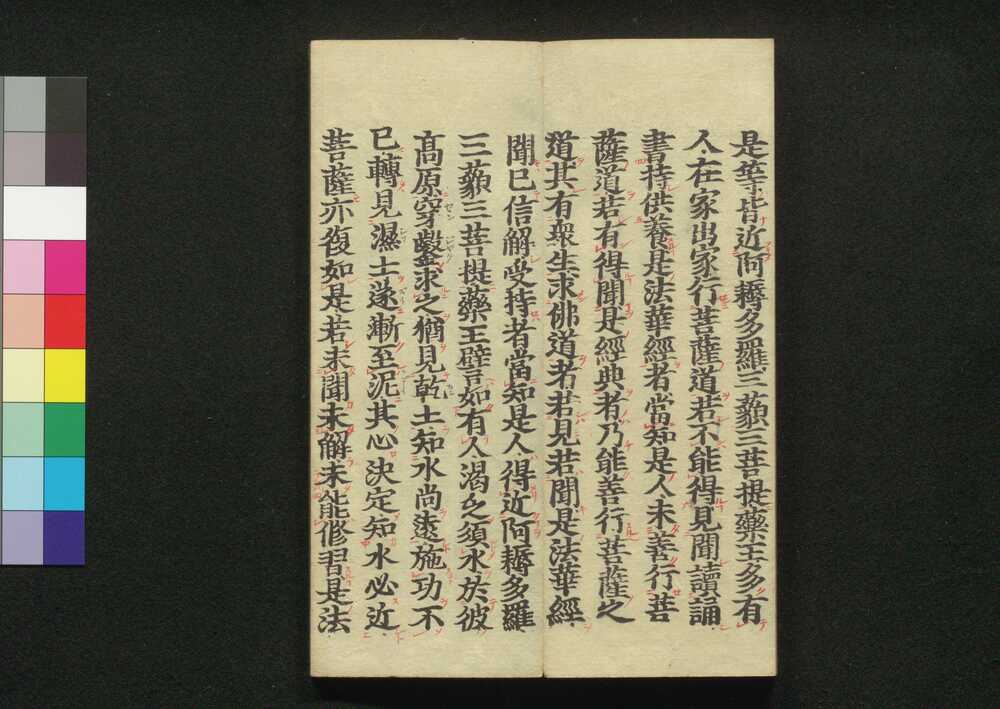 是等皆近阿耨多羅三藐三菩提藥王多有
人在家出家行菩薩道若不能得見聞讀誦
書持供養是法華經者當知是人未善行菩
薩道若有得聞是經典者乃能善行菩薩之
道其有衆生求佛道者若見若聞是法華經
聞已信解受持者當知是人得近阿耨多羅
三藐三菩提藥王譬如有人渴乏須水於彼
高原穿鑿求之猶見乾土知水尚遠施功不
已轉見濕土遂漸至泥其心決定知水必近
菩薩亦復如是若未聞未解未能修習是法